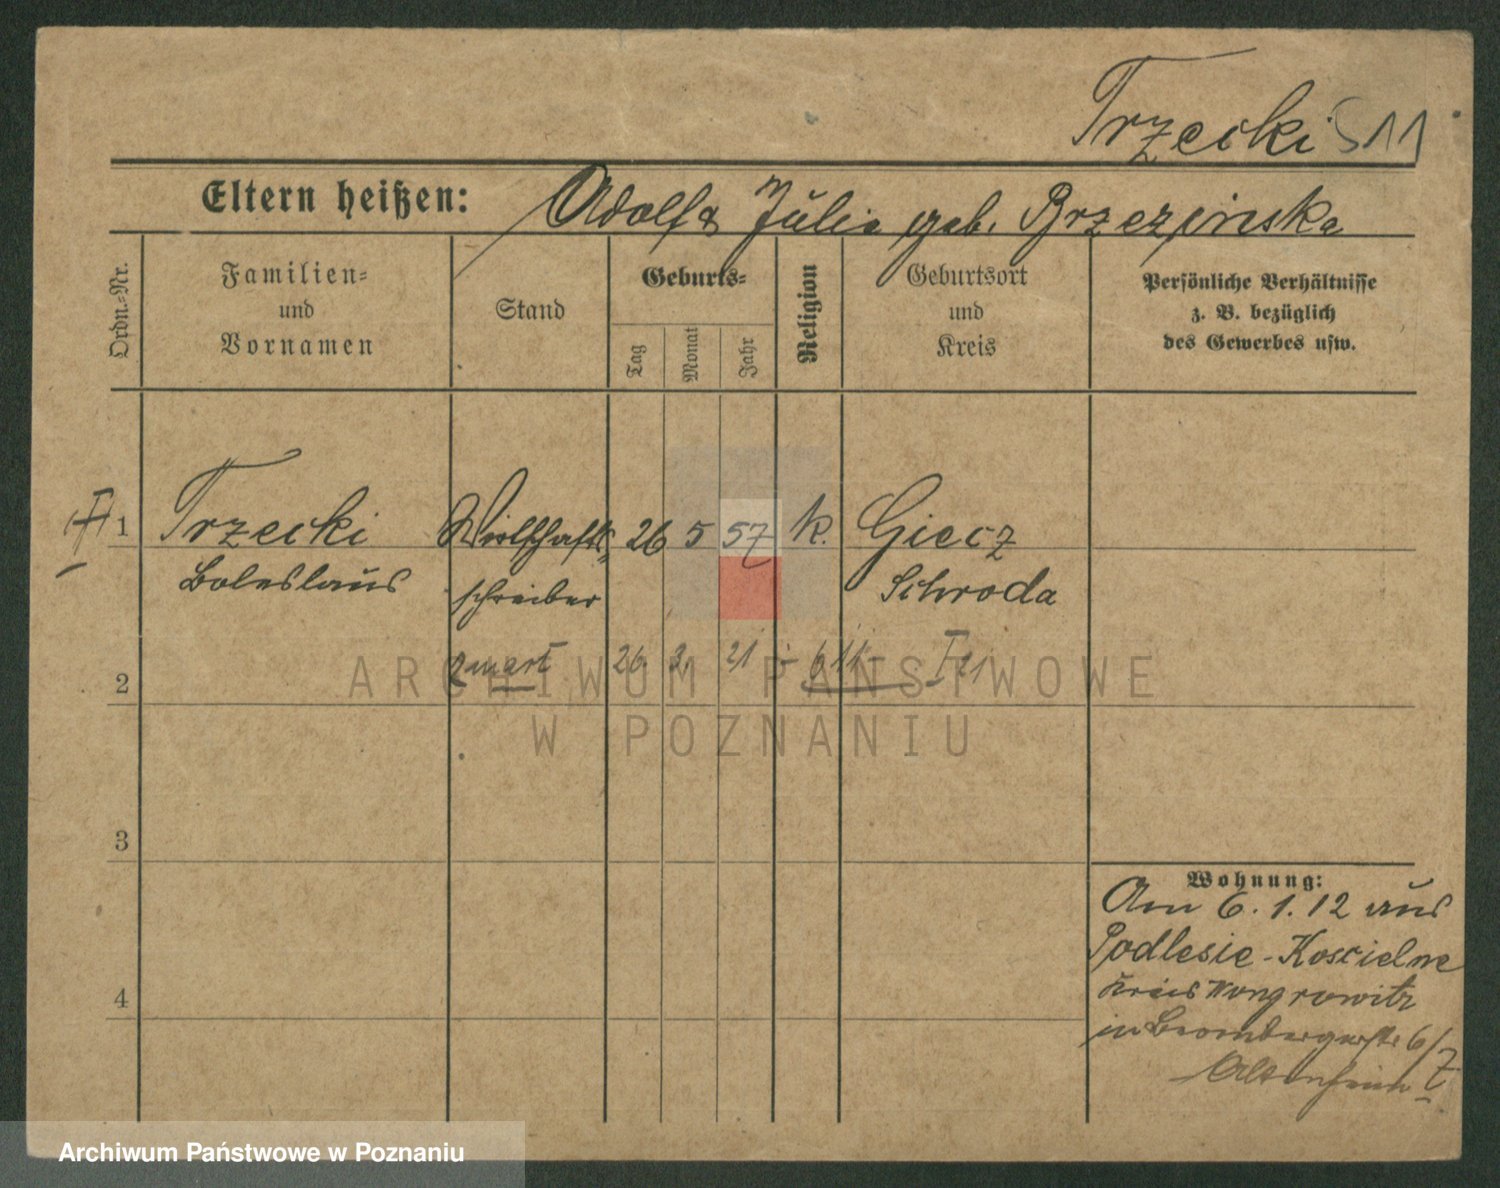 Trzecki S11
Eltern heißen: Adolf & Julie geb. Brzezinska
Ordn.=Nr.
Familien=
und
Vornamen
Stand
Geburts=
Tag
Monat
Jahr
Religion
Geburtsort
und
Kreis
Persönliche Verhältnisse
z. B. bezüglich
des Gewerbes usw.
1 Trzecki Wirtschafts 26 5 57 k. Giecz
Boleslaus schreiber Schroda
2 26. 3. 21 611 I 21
3
4
Wohnung:
Am 6.1.12 aus
Podlesie-Koscielne
Kreis Wongrowitz
in Brombergerstr 6/7
Altenheim
ARCHIWUM PAŃSTWOWE
W POZNANIU
Archiwum Państwowe w Poznaniu